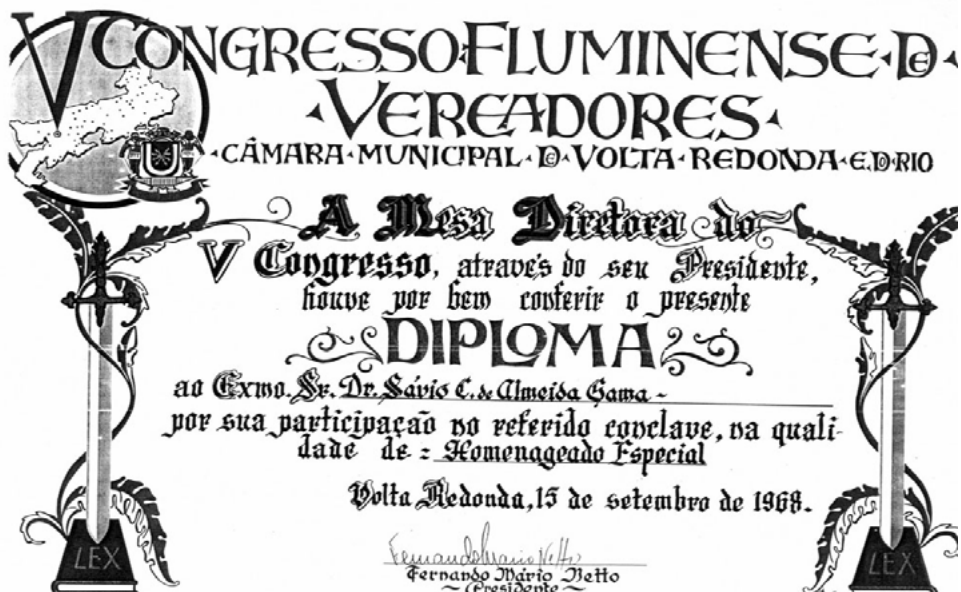 V CONGRESSO·FLUMINENSE·DE·
·VEREADORES·
·CÂMARA·MUNICIPAL·DE·VOLTA·REDONDA·E.DO·RIO
A Mesa Diretora do
V Congresso, através do seu Presidente,
houve por bem conferir o presente
DIPLOMA
ao Exmo. Sr. Dr. Sávio C. de Almeida Gama -
por sua participação no referido conclave, na quali-
dade de = Homenageado Especial
Volta Redonda, 15 de setembro de 1968.
LEX
LEX
Fernando Mário Netto
Fernando Mário Netto
~ Presidente ~